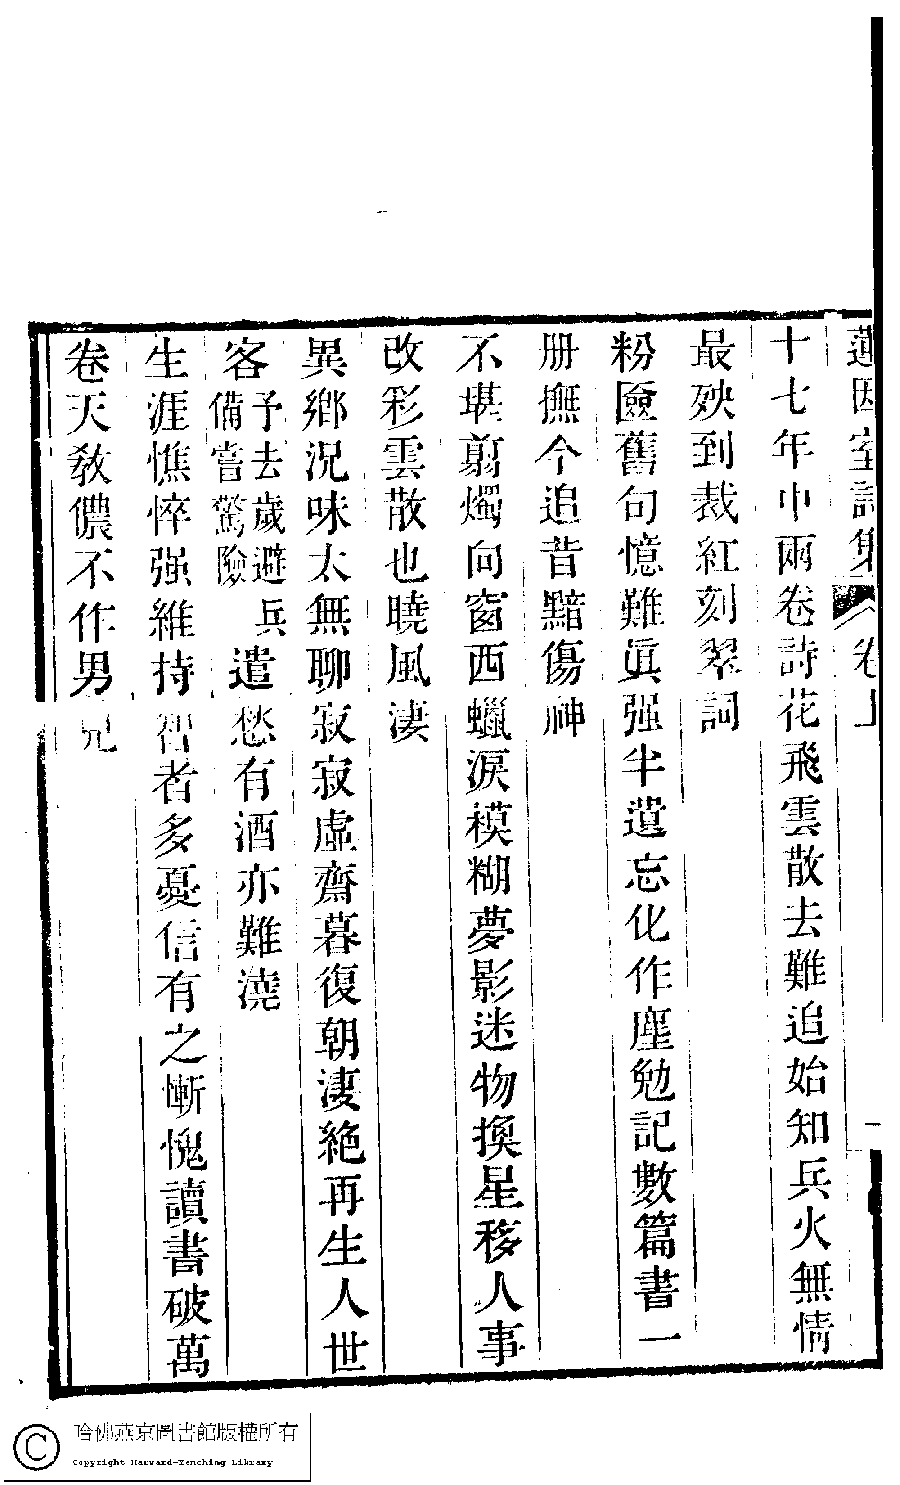 蓮因室詩集 卷上 一
十七年中兩卷詩花飛雲散去難追始知兵火無情
最殃到裁紅刻翠詞
粉匳舊句憶難眞强半遺忘化作塵勉記數篇書一
册撫今追昔黯傷神
不堪翦燭向窗西蠟淚模糊夢影迷物換星移人事
改彩雲散也曉風淒
異鄉況味太無聊寂寂虛齋暮復朝淒絶再生人世
客予去歲避兵備嘗驚險遣愁有酒亦難澆
生涯憔悴强維持智者多憂信有之慚愧讀書破萬
卷天敎儂不作男兒
哈佛燕京圖書館版權所有
Copyright Harvard-Yenching Library